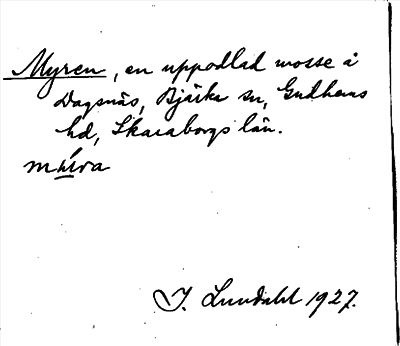 Myren, en uppodlad mosse å
Dagsnäs, Bjärka sn, Gudhems
hd, Skaraborgs län.
I. Lundahl 1927.